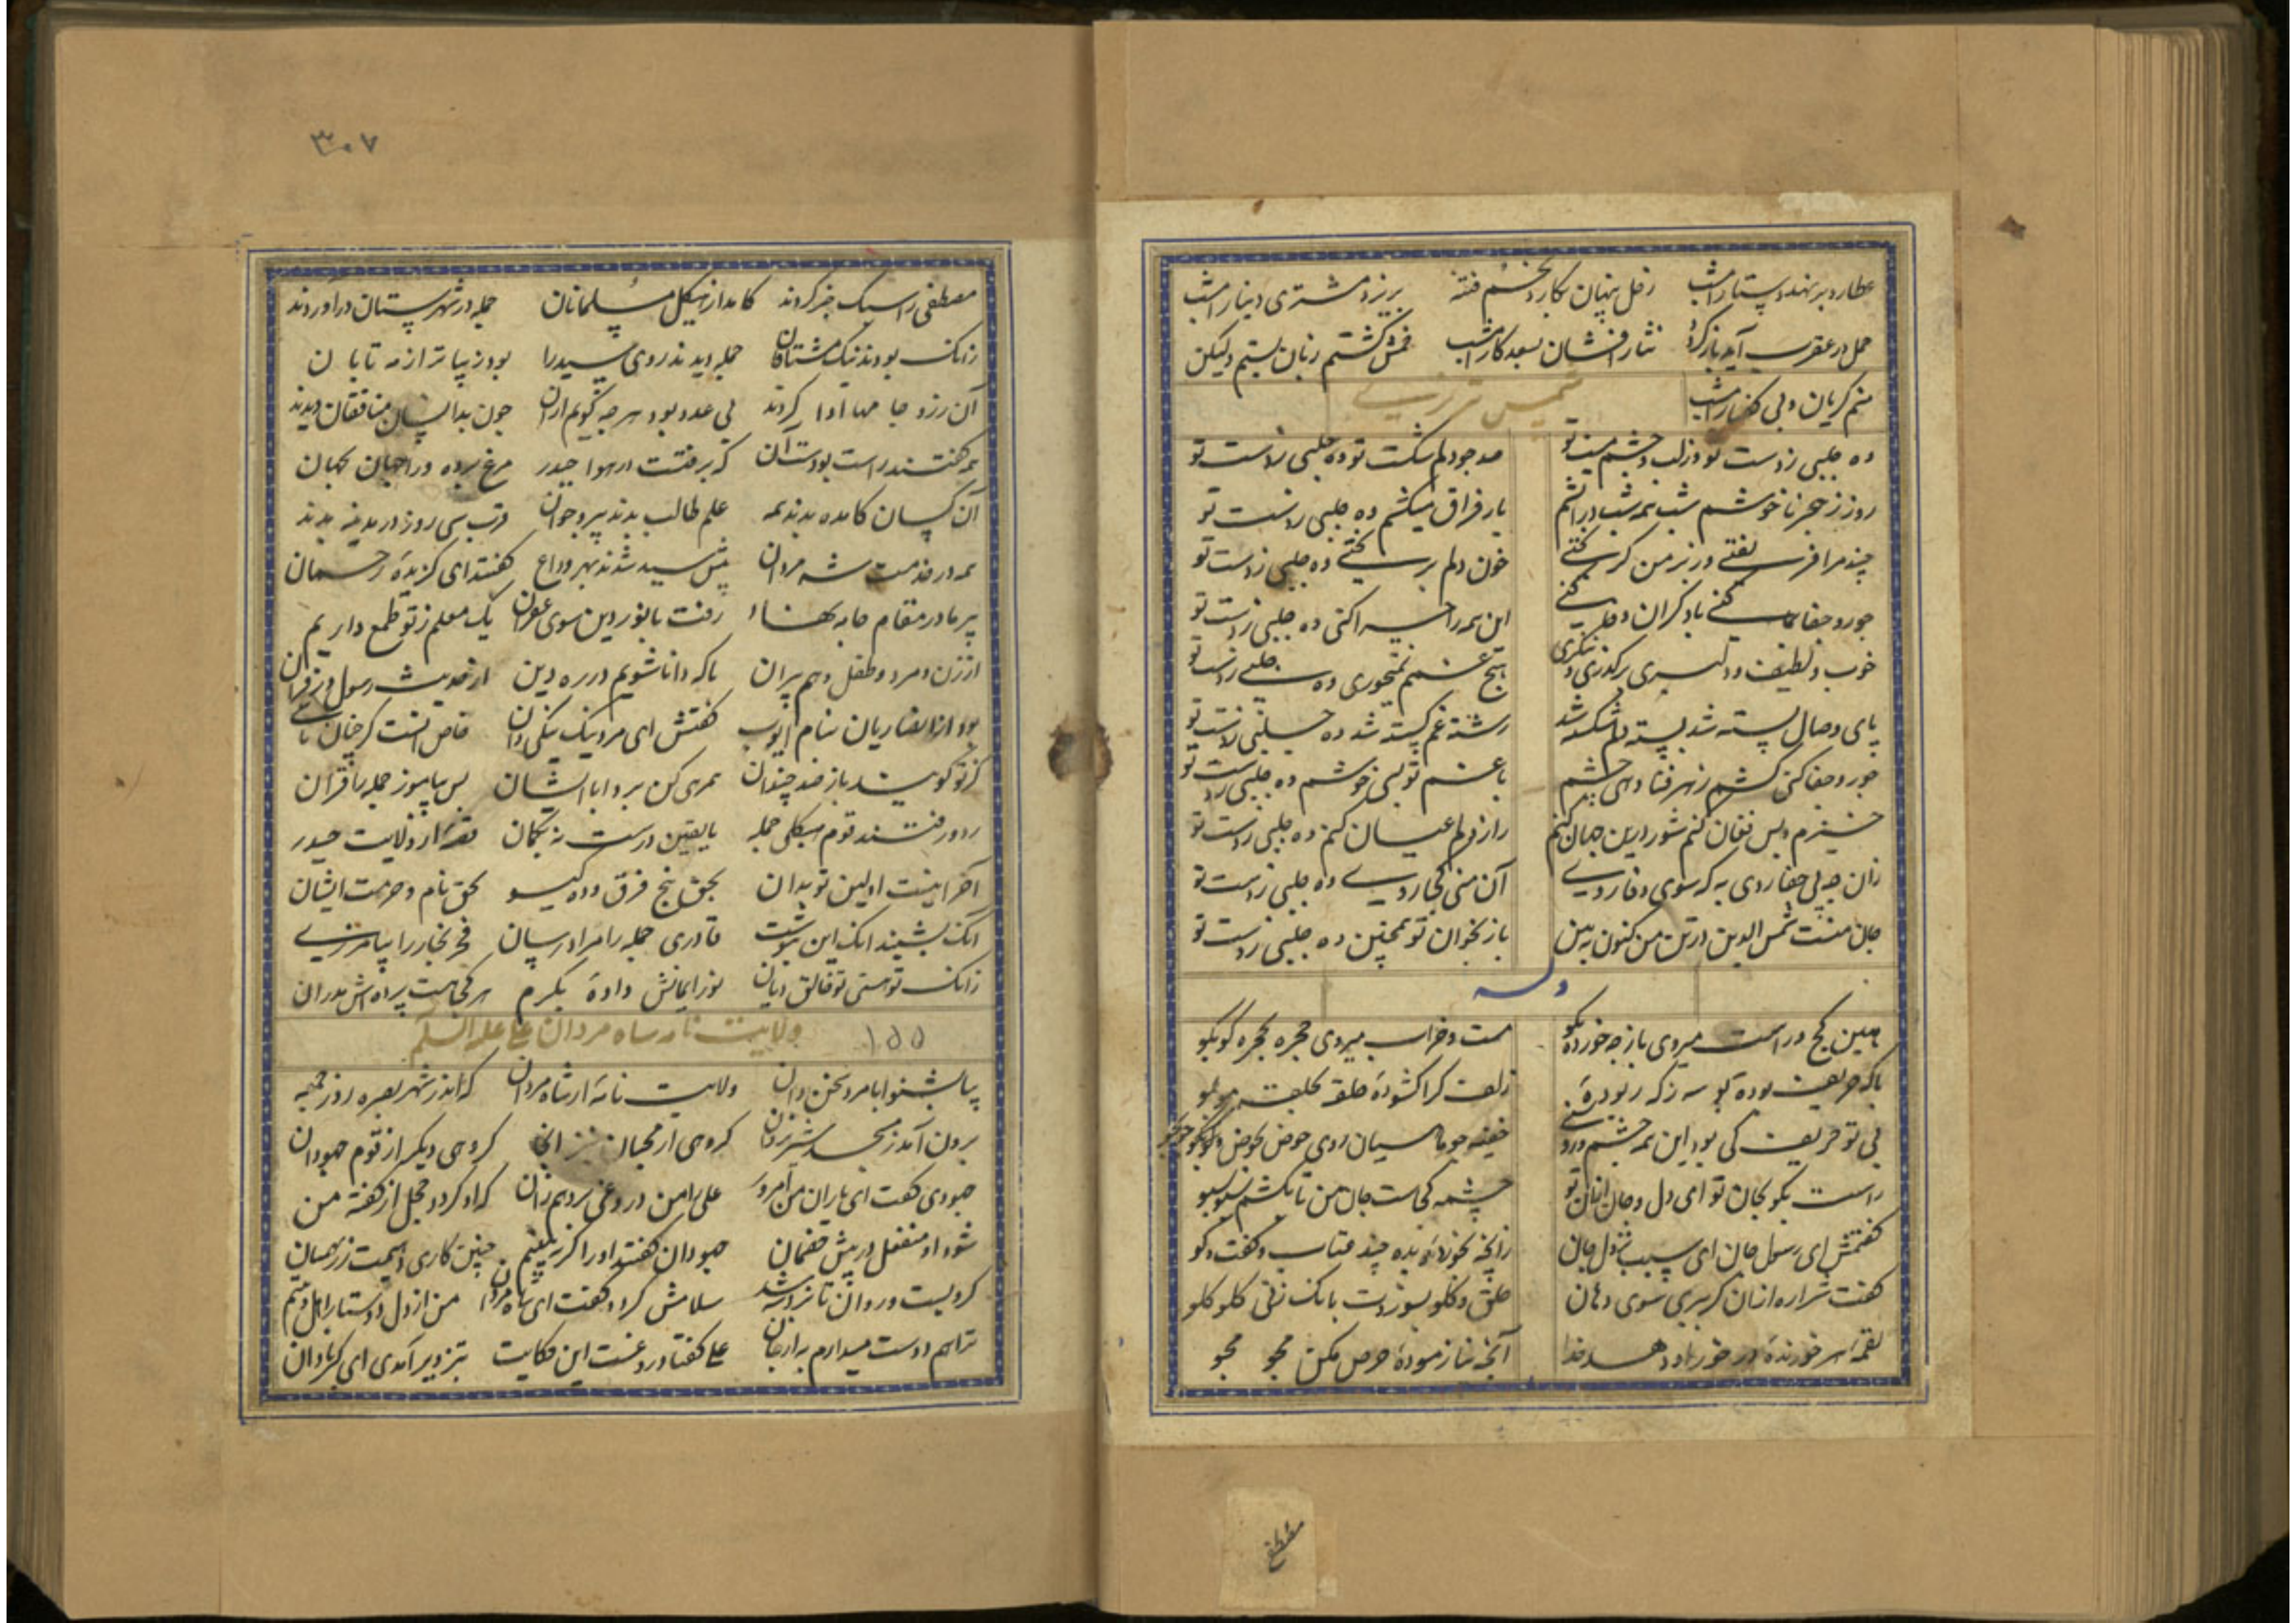 عطارد بر نهد دستار امشب زحل پنهان بکارد تخم فتنه بریزد مشتری دینار امشب
حمل در عقرب آید باز کرد نثار افشان بسعد کار امشب خمش گشتم زبان بستم ولیکن
منم گریان و بی گفتار امشب
شمس تبریزی
روز ز هجر ناخوشم شب همه شب در آتشم بار فراق میکشم
چند مرا فریفتی وز بر من گریختی خون دلم بریختی
جور و جفا همی کنی با دگران وفا کنی این همه را چرا کنی
خوب و لطیف و دلبری برگذری و ننگری هیچ غمم نمیخوری
پای وصال بسته شد پسته دلم شکسته شد رشته غم گسسته شد
جور و جفا کنی کشم زهر فنا دهی چشم با غم تو بسی خوشم
خیزم و بس فغان کنم شور درین جهان کنم راز دلم عیان کنم
زان چه پی جفا روی به که سوی وفا روی آن منی کجا روی
جان منست شمس الدین در تن من کنون ببین باز بخوان تو همچنین
وله
همین کج و راست میروی باز چه خورده بگو مست و خراب میروی حجره بحجره کو بکو
با که حریف بوده بوسه ز که ربوده زلف کرا گشوده حلقه بحلقه مو بمو
نی تو حریف کی بود این همه چشم خفیه چو ماهیان روی حوض بحوض و جو بجو
راست بگو بجان تو ای دل و جان از آن تو چشمه کجاست جان من تا بکشم سبو سبو
گفتمش ای رسول جان ای سبب نزول جان زانچه بخورده بده چند عتاب و گفت و گو
گفت شراره از آن گر ببری سوی دهان حلق و گلو بسوزدت بانک زنی گلو گلو
لقمه هر خورنده در خور او دهد خدا آنچه نیازموده حرص مکن مجو مجو
مقطع
۳۰۷
مصطفی را سبک خبر کردند کامد از هیکل مسلمانان جمله در شهرستان درآوردند
زانک بودند نیک مشتاقان جمله دیدند روی سید را بود زیباتر از مه تابان
آن رزو جامها ادا کردند بی عدد بود هر چه گویم از آن چون بدانسان منافقان دیدند
همه گفتند راست بودست آن که برفتست در هوا حیدر مرغ برده ورا جهان بجهان
آن کسان کامده بدند همه علم طالب بدند پیر و جوان قرب سی روز در مدینه بدند
همه در خدمت شه مردان پیش سید شدند بهر وداع گفتند ای گزیده رحمان
پیر ما در مقام رفت با نور دین سوی یک معلم ز تو طمع داریم
از زن و مرد و طفل و هم پیران تا که دانا شویم در ره دین از حدیث رسول و ز قرآن
بود از انصاریان بنام ایوب گفتش ای مرد نیک نیکی دان
همرهی کن برو ابا ایشان پس بیاموز جمله را قرآن
زود رفتند قوم هیکلی جمله با یقین درست نه بگمان قصه از ولایت حیدر
آخر اینست اولین تو بدان بحق پنج فرق و ده گیسو بحق نام و حرمت ایشان
انک بشنید انک این بنوشت قادری جمله را مراد رسان فخر نجار را بیامرزی
زانک تو هستی تو خالق دیان نور ایمانش داده بکرم هر کجا هست پرده اش مدران
ولایت نامه شاه مردان علی علیه السلام
۱۵۵
بیا بشنو ابا مرد سخن دان ولایت نامه از شاه مردان که اندر شهر بصره روز جمعه
برون آمد ز مسجد شیر یزدان گروهی از محبان گروهی دیگر از قوم جهودان
جهودی گفت ای یاران من امروز علی را من دروغی بردهم زان که او گردد خجل از گفته من
شود او منفعل در پیش خصمان جهودان گفتند او را گر چنین کاری دهیمت زر همیان
گرویست و روان تا نزد شه شد سلامش کرد و گفت ای شاه مردان من از دل دوستدار اهل دینم
ترا هم دوست میدارم به از جان علی گفتا دروغست این حکایت بتزویر آمدی ای گبر نادان